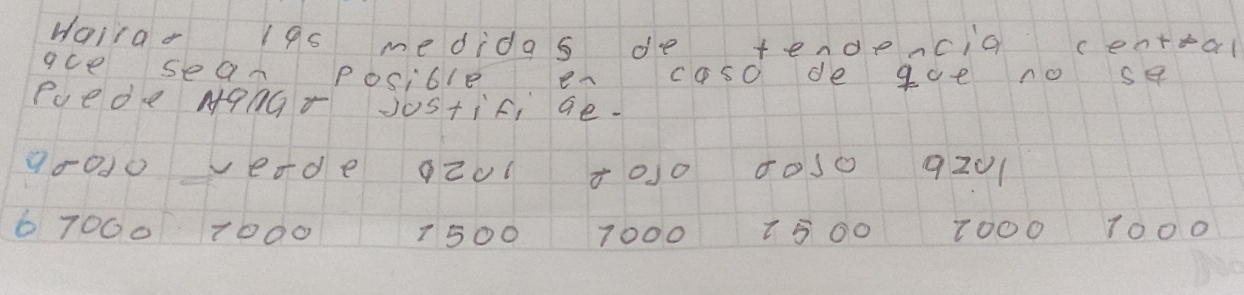 Hallar las medidas de tendencia central
que sean posible en caso de que no se
puede Hallar justifi que.
a rojo verde azul rojo rojo azul
b 1000 1000 1500 1000 1500 1000 1000